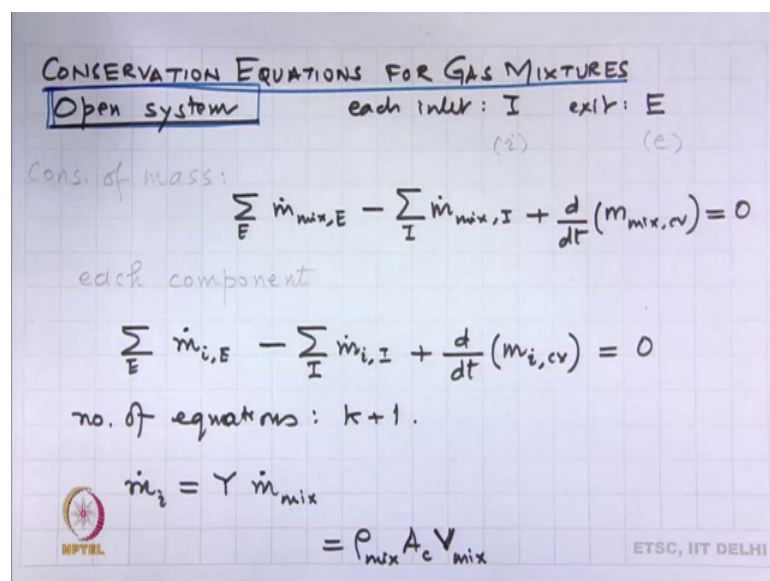 CONSERVATION EQUATIONS FOR GAS MIXTURES
Open system each inlet : I exit : E
(i) (e)
Cons. of mass:
∑_E ṁ_mix,E − ∑_I ṁ_mix,I + d/dt (m_mix,cv) = 0
each component
∑_E ṁ_i,E − ∑_I ṁ_i,I + d/dt (m_i,cv) = 0
no. of equations : k+1.
ṁ_i = Y ṁ_mix
= ρ_mix A_c V_mix
NPTEL
ETSC, IIT DELHI